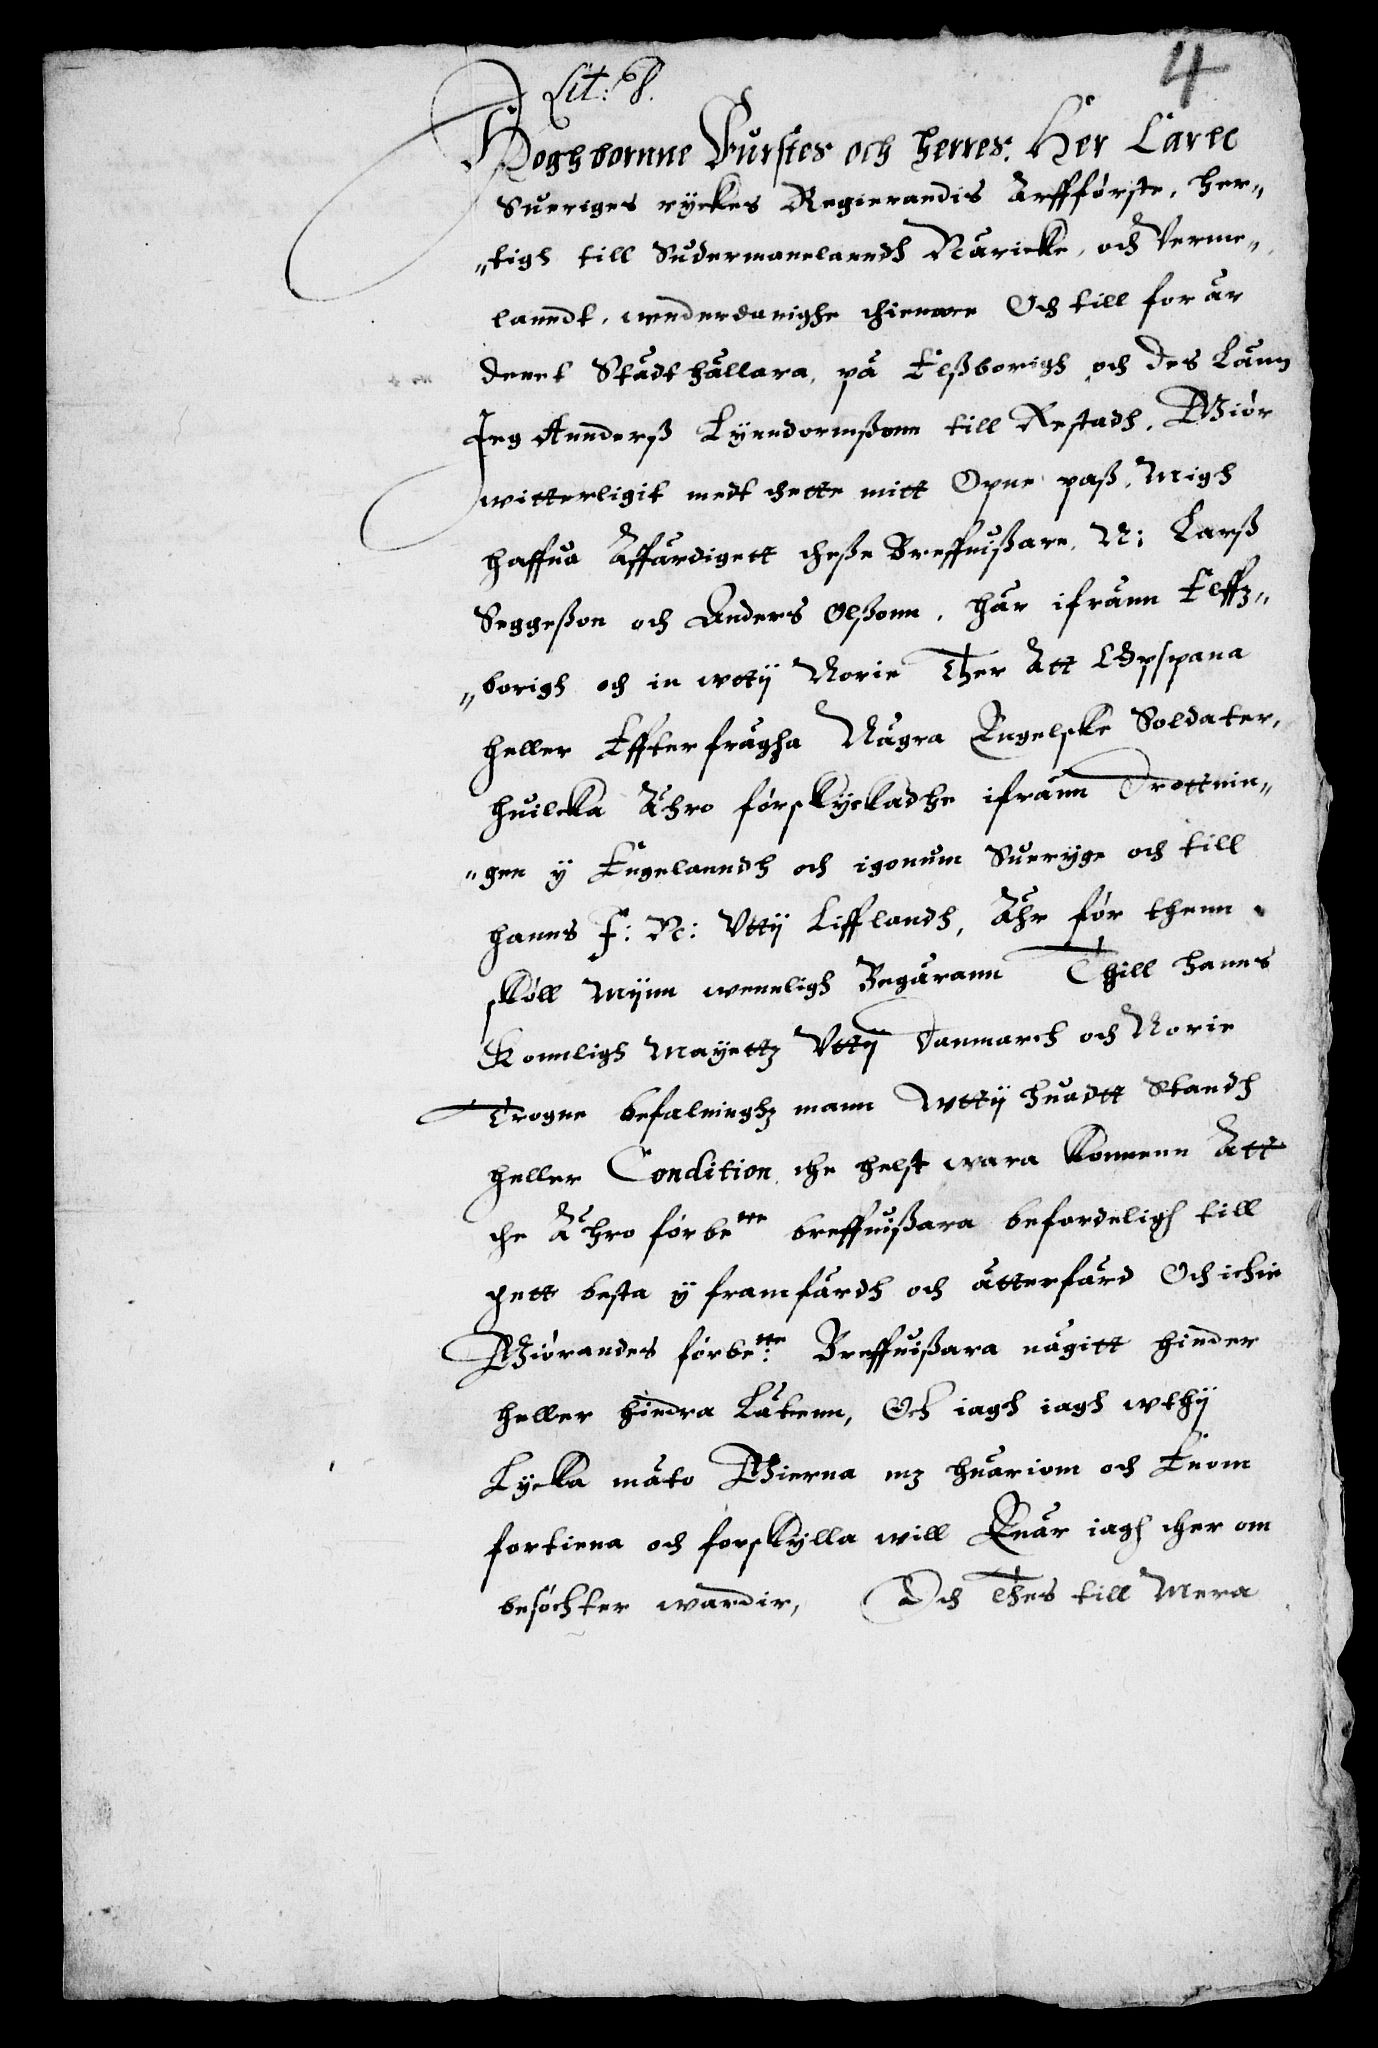 4
Lit: B.
Höghbornne Furstes och herres. Her Carlc
Sueriges ryckes Regierandis Arffförste, her„
„tigh till Sudermannelanndh Näricke, och Verme„
lanndt, wnderdanighe thienare Och till forär
denet Stådthållara, på Elßborigh och des Länn
Jeg Annderß Lynndormßonn till Restadh, Giör
witterligit medt thette mitt Opne paß, Migh
haffua Affärdigett theße Breffuißare, N: Larß
Seggeßon och Anders Olßonn, här ifrånn Elffz„
„borigh och in wttij Norie Ther Att Vpspana
heller Effterfrågha Några Engelske Soldater,
huilcka Ähro förskyckadhe ifrånn Drottnin„
„gen y Engelanndh och igonum Sueryge och till
hanns F: N: Vttij Lifflandh, Ähr för thenn
sköll Mynn wennligh Begärann Thill hanns
Konnligh Mayettz Vttÿ Danmarch och Norie
Trogne befalninghz mann Wttij huadtt Standh
heller Condition the helst wara konnenn Att
the Ähro förbe<sup>tte</sup> breffuißara befordeligh till
thett besta y framfärdh och åtterfärd Och ickie
Giörandes förbe<sup>tte</sup>: Breffuißara någitt hinder
heller hindra Låtenn, Och iagh iagh wthÿ
Lycka måto Gierna mz huariom och Enom
fortiena och forskylla will Enär iagh ther om
besöchter wardir, Och Thes till Mera